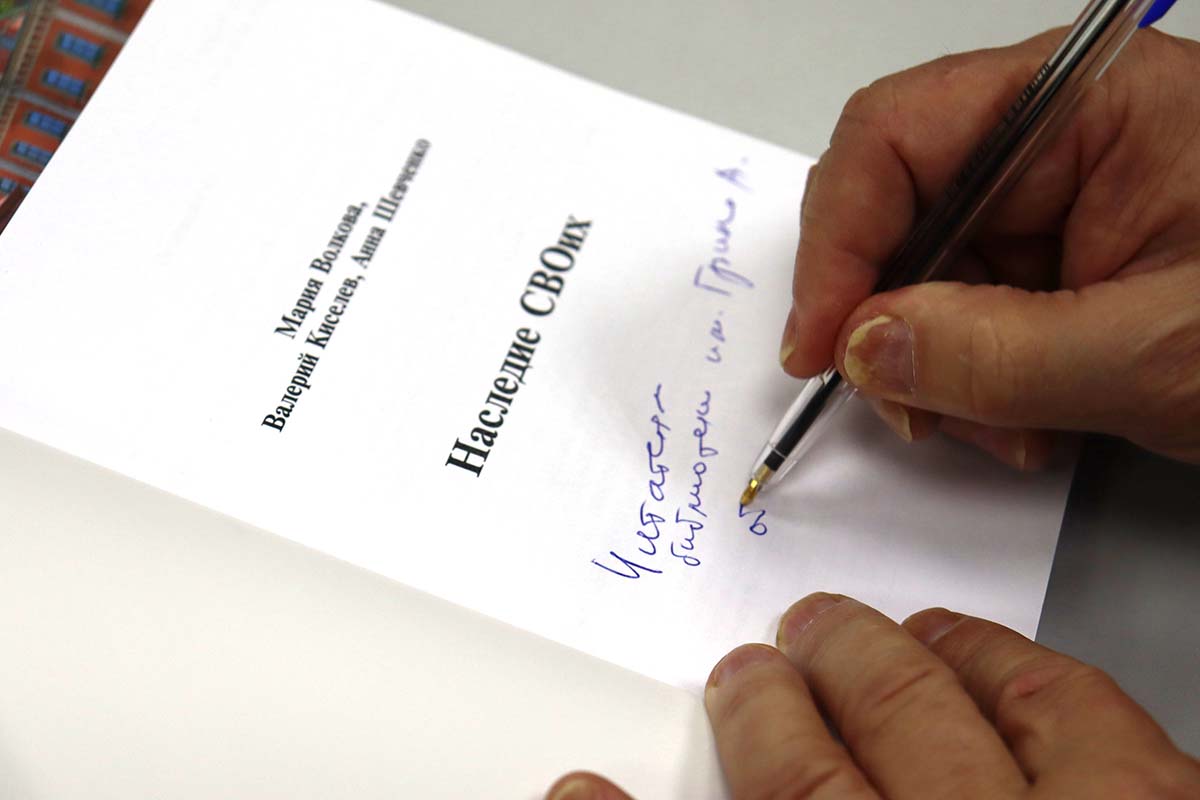 Мария Волкова,
Валерий Киселев, Анна Шевченко
Наследие СВОих
Читателям
библиотеки им. Грина А.
от